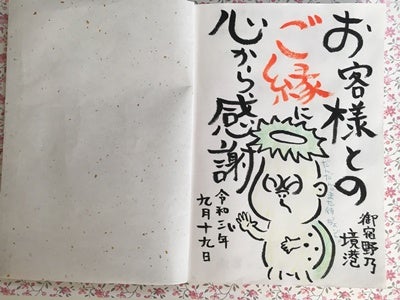 お客様との
ご縁にて
心から、感謝
御宿野乃
境港
令和三年
九月十九日